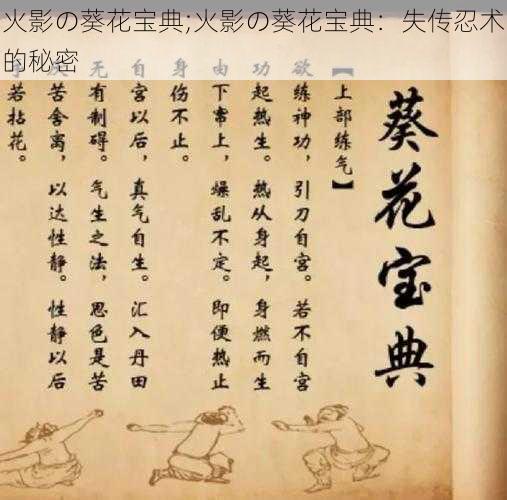 火影の葵花宝典;火影の葵花宝典：失传忍术
的秘密
葵花宝典
【上部练气】
欲练神功，引刀自宫。若不自宫
功起热生。热从身起，身燃而生
由下窜上，燥乱不定。即便热止
身伤不止。
自宫以后，真气自生。汇入丹田
无有制碍。气生之法，思色是苦
苦舍离，以达性静。性静以后
若拈花。